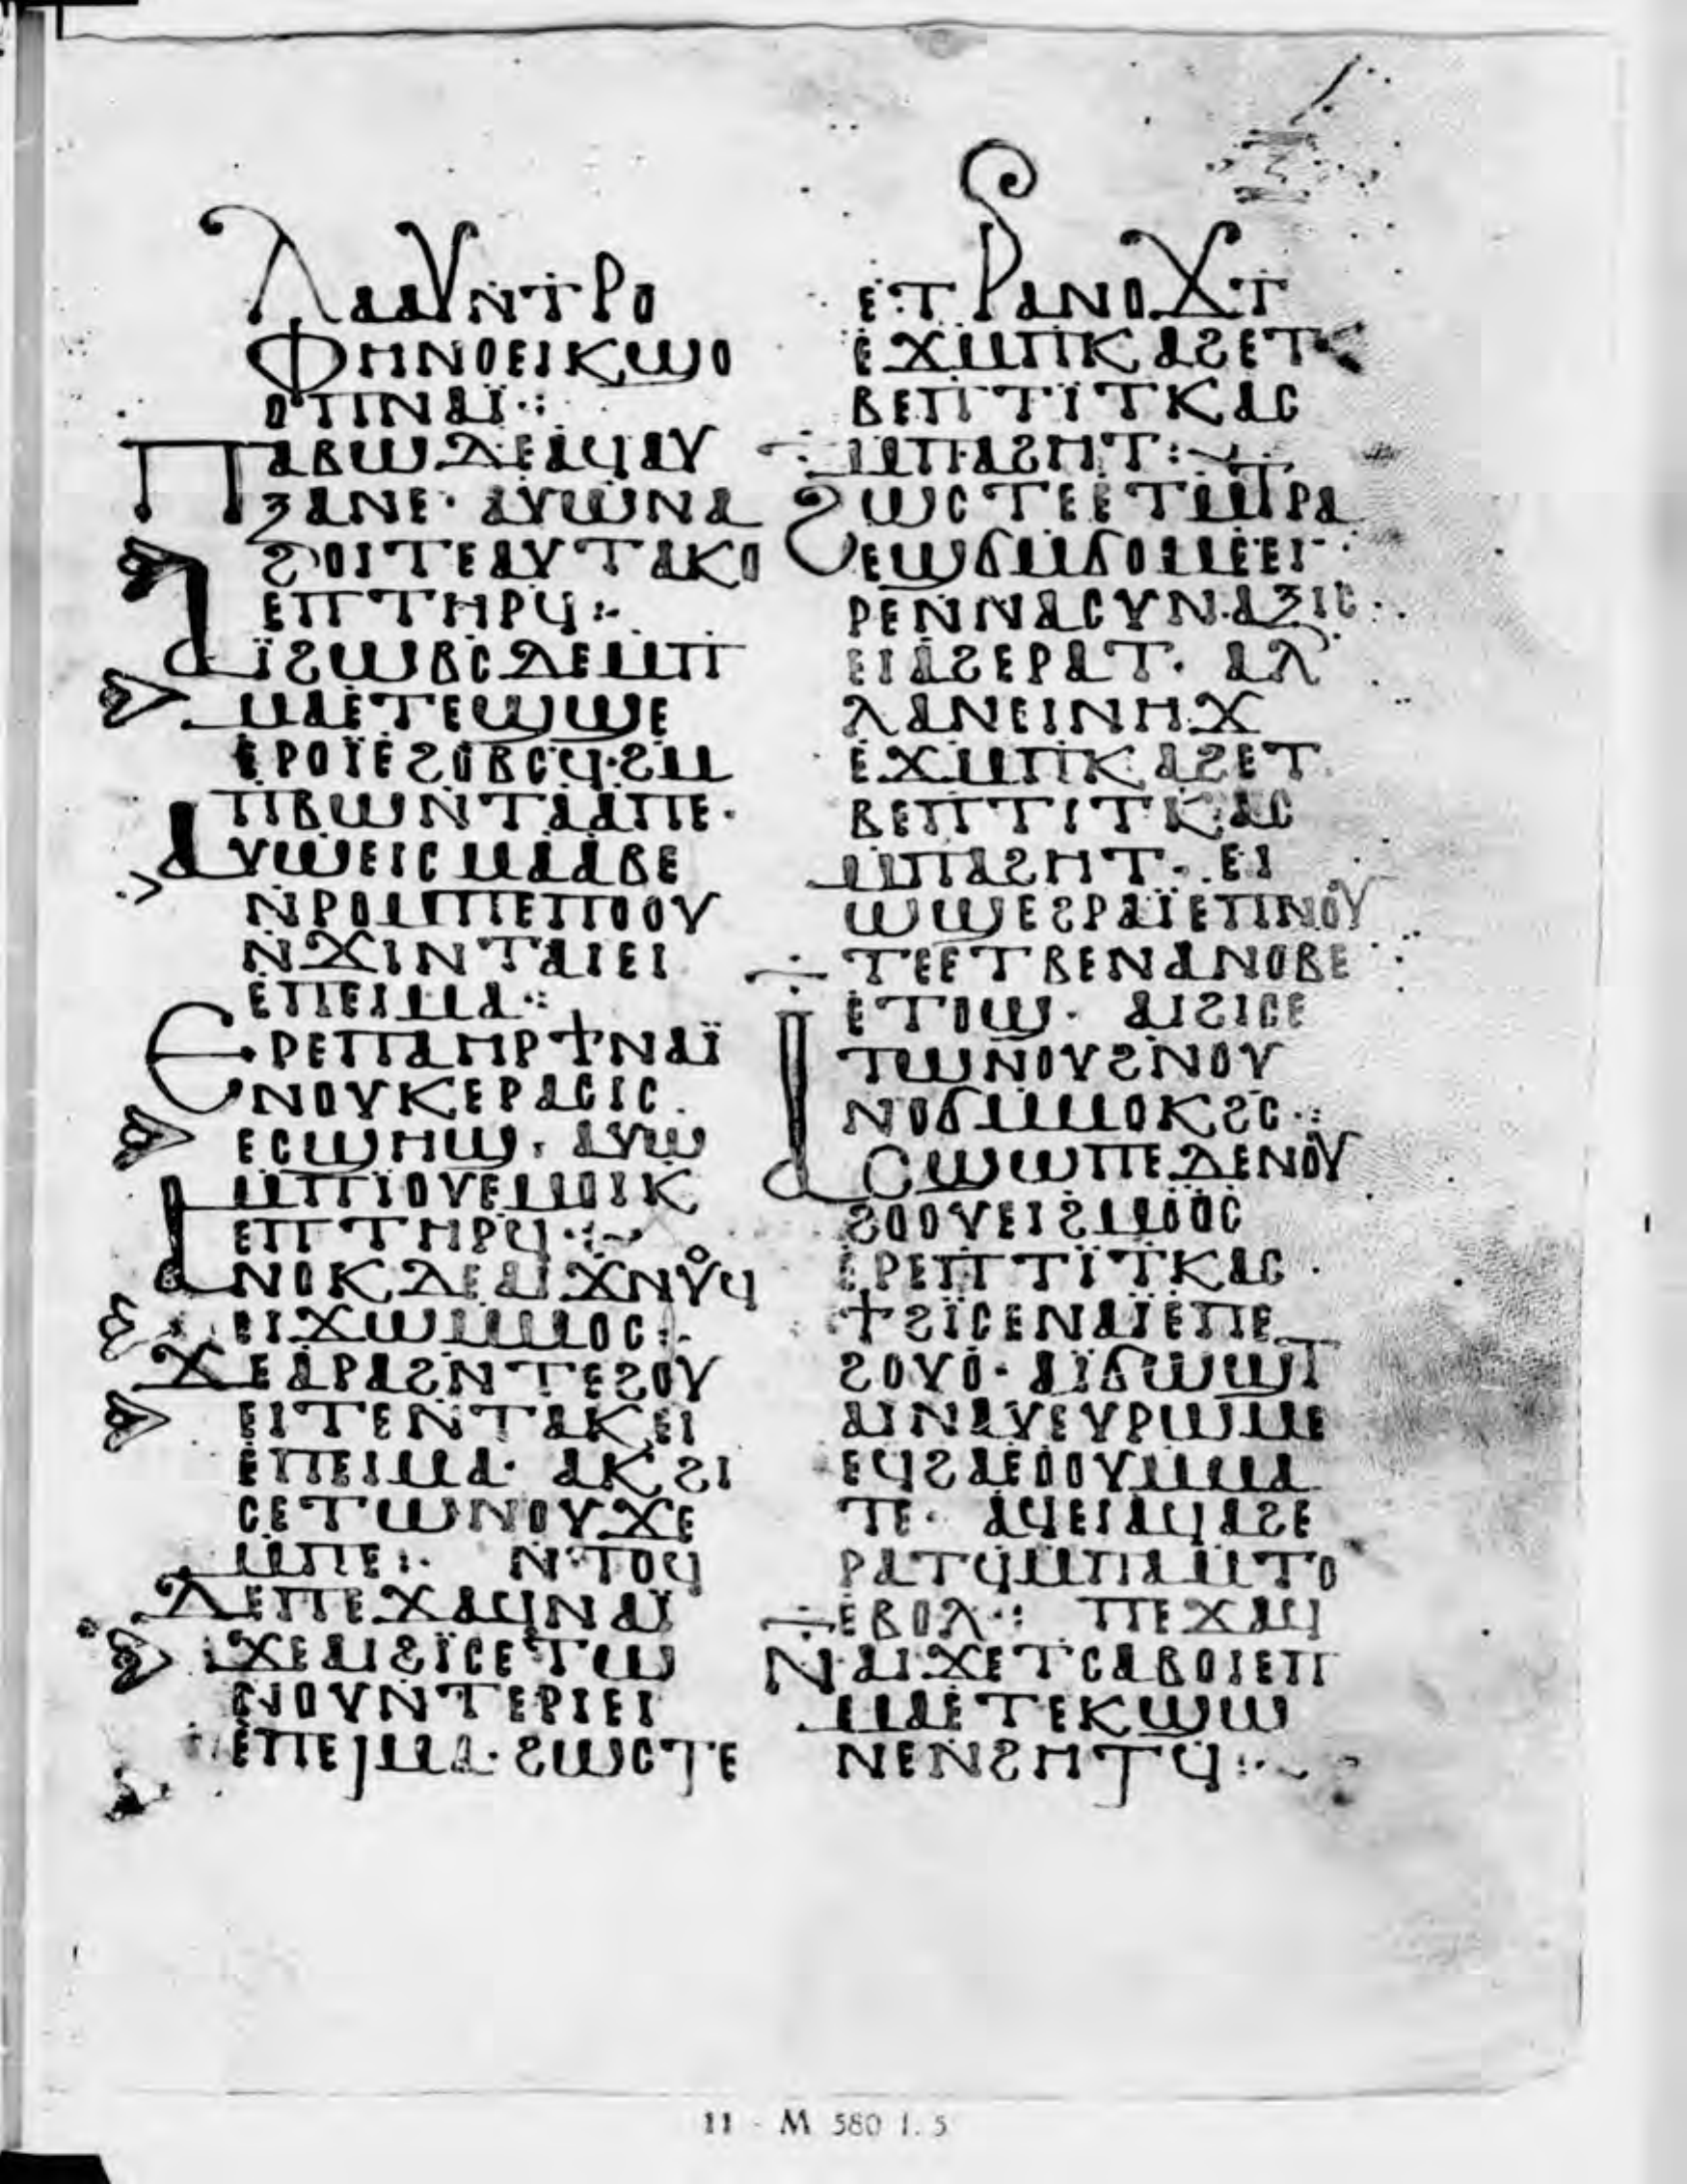 ⲗⲁⲁⲩⲛⲧⲣⲟ
ⲫⲏⲛⲟⲉⲓⲕϣⲟ
ⲟⲡⲛⲁⲓ̈⁘
ⲡⲁⲃⲱⲇⲉⲁϥⲁⲩ
ⲝⲁⲛⲉ· ⲁⲩⲱⲛⲁ
ϩⲟⲓⲧⲉⲁⲩⲧⲁⲕⲟ
ⲉⲡⲧⲏⲣϥ⁘
ⲁⲓ̈ϩⲱⲃⲥⲇⲉⲙⲡ
ⲙⲁⲉⲧⲉϣϣⲉ
ⲉⲣⲟⲓ̈ⲉϩⲟⲃⲥϥ·ϩⲙ
ⲡϥⲱⲛⲧⲁⲁⲡⲉ·
ⲁⲩⲱⲉⲓⲥⲙⲁⲁⲃⲉ
ⲛⲣⲟⲙⲡⲉⲡⲟⲟⲩ
ⲛϫⲓⲛⲧⲁⲓⲉⲓ
ⲉⲡⲉⲓⲙⲁ⁘
ⲉⲣⲉⲡⲁⲏⲣϯⲛⲁⲓ̈
ⲛⲟⲩⲕⲉⲣⲁⲥⲓⲥ
ⲉⲥϣⲏϣ· ⲁⲩⲱ
ⲙⲡⲓⲟⲩⲉⲙⲟⲓⲕ
ⲉⲡⲧⲏⲣϥ⁘
ⲁⲛⲟⲕⲇⲉⲁⲓϫⲛⲟⲩϥ
ⲉⲓϫⲱⲙⲙⲟⲥ⁘
ϫⲉⲁⲣⲁϩⲛⲧⲉϩⲟⲩ
ⲉⲓⲧⲉⲛⲧⲁⲕⲉⲓ
ⲉⲡⲉⲓⲙⲁ· ⲁⲕϩⲓ
ⲥⲉⲧⲱⲛⲟⲩϫⲉ
ⲙⲡⲉ⁘ ⲛⲧⲟϥ
ⲇⲉⲡⲉϫⲁϥⲛⲁⲓ̈
ϫⲉⲁⲓϩⲓ̈ⲥⲉⲧⲱ
ⲛⲟⲩⲛⲧⲉⲣⲓⲉⲓ
ⲉⲡⲉⲓⲙⲁ·ϩⲱⲥⲧⲉ
ⲉⲧⲣⲁⲛⲟϫⲧ
ⲉϫⲙⲡⲕⲁϩⲉⲧ
ⲃⲉⲡⲧⲓ̈ⲧⲕⲁⲥ
ⲙⲡⲁϩⲏⲧ⁘
ϩⲱⲥⲧⲉⲉⲧⲙⲧⲣⲁ
ⲉϣϭⲙϭⲟⲙⲉⲉⲓ
ⲣⲉⲛⲛⲁⲥⲩⲛⲁⲝⲓⲥ·
ⲉⲓⲁϩⲉⲣⲁⲧ· ⲁⲗ
ⲗⲁⲛⲉⲓⲛⲏϫ
ⲉϫⲙⲡⲕⲁϩⲉⲧ
ⲃⲉⲡⲧⲓⲧⲕⲁⲥ
ⲙⲡⲁϩⲏⲧ· ⲉⲓ
ⲱϣⲉϩⲣⲁⲓ̈ⲉⲡⲛⲟⲩ
ⲧⲉⲉⲧⲃⲉⲛⲁⲛⲟⲃⲉ
ⲉⲧⲟϣ· ⲁⲓϩⲓⲥⲉ
ⲧⲱⲛⲟⲩϩⲛⲟⲩ
ⲛⲟϭⲙⲙⲟⲕϩⲥ⁘
ⲁⲥϣⲱⲡⲉⲇⲉⲛⲟⲩ
ϩⲟⲟⲩⲉⲓϩⲙⲟⲟⲥ
ⲉⲣⲉⲡⲧⲓ̈ⲧⲕⲁⲥ
ϯϩⲓ̈ⲥⲉⲛⲁⲓ̈ⲉⲡⲉ
ϩⲟⲩⲟ· ⲁⲓ̈ϭⲱϣⲧ
ⲁⲓⲛⲁⲩⲉⲩⲣⲱⲙⲉ
ⲉϥϩⲁⲉⲟⲟⲩⲙⲙⲁ
ⲧⲉ· ⲁϥⲉⲓⲁϥⲁϩⲉ
ⲣⲁⲧϥⲙⲡⲁⲙⲧⲟ
ⲉⲃⲟⲗ⁘ ⲡⲉϫⲁϥ
ⲛⲁⲓϫⲉⲧⲥⲁⲃⲟⲓⲉⲡ
ⲙⲁⲉⲧⲉⲕϣⲱ
ⲛⲉⲛϩⲏⲧϥ⁘
11 - M 580 I. 5